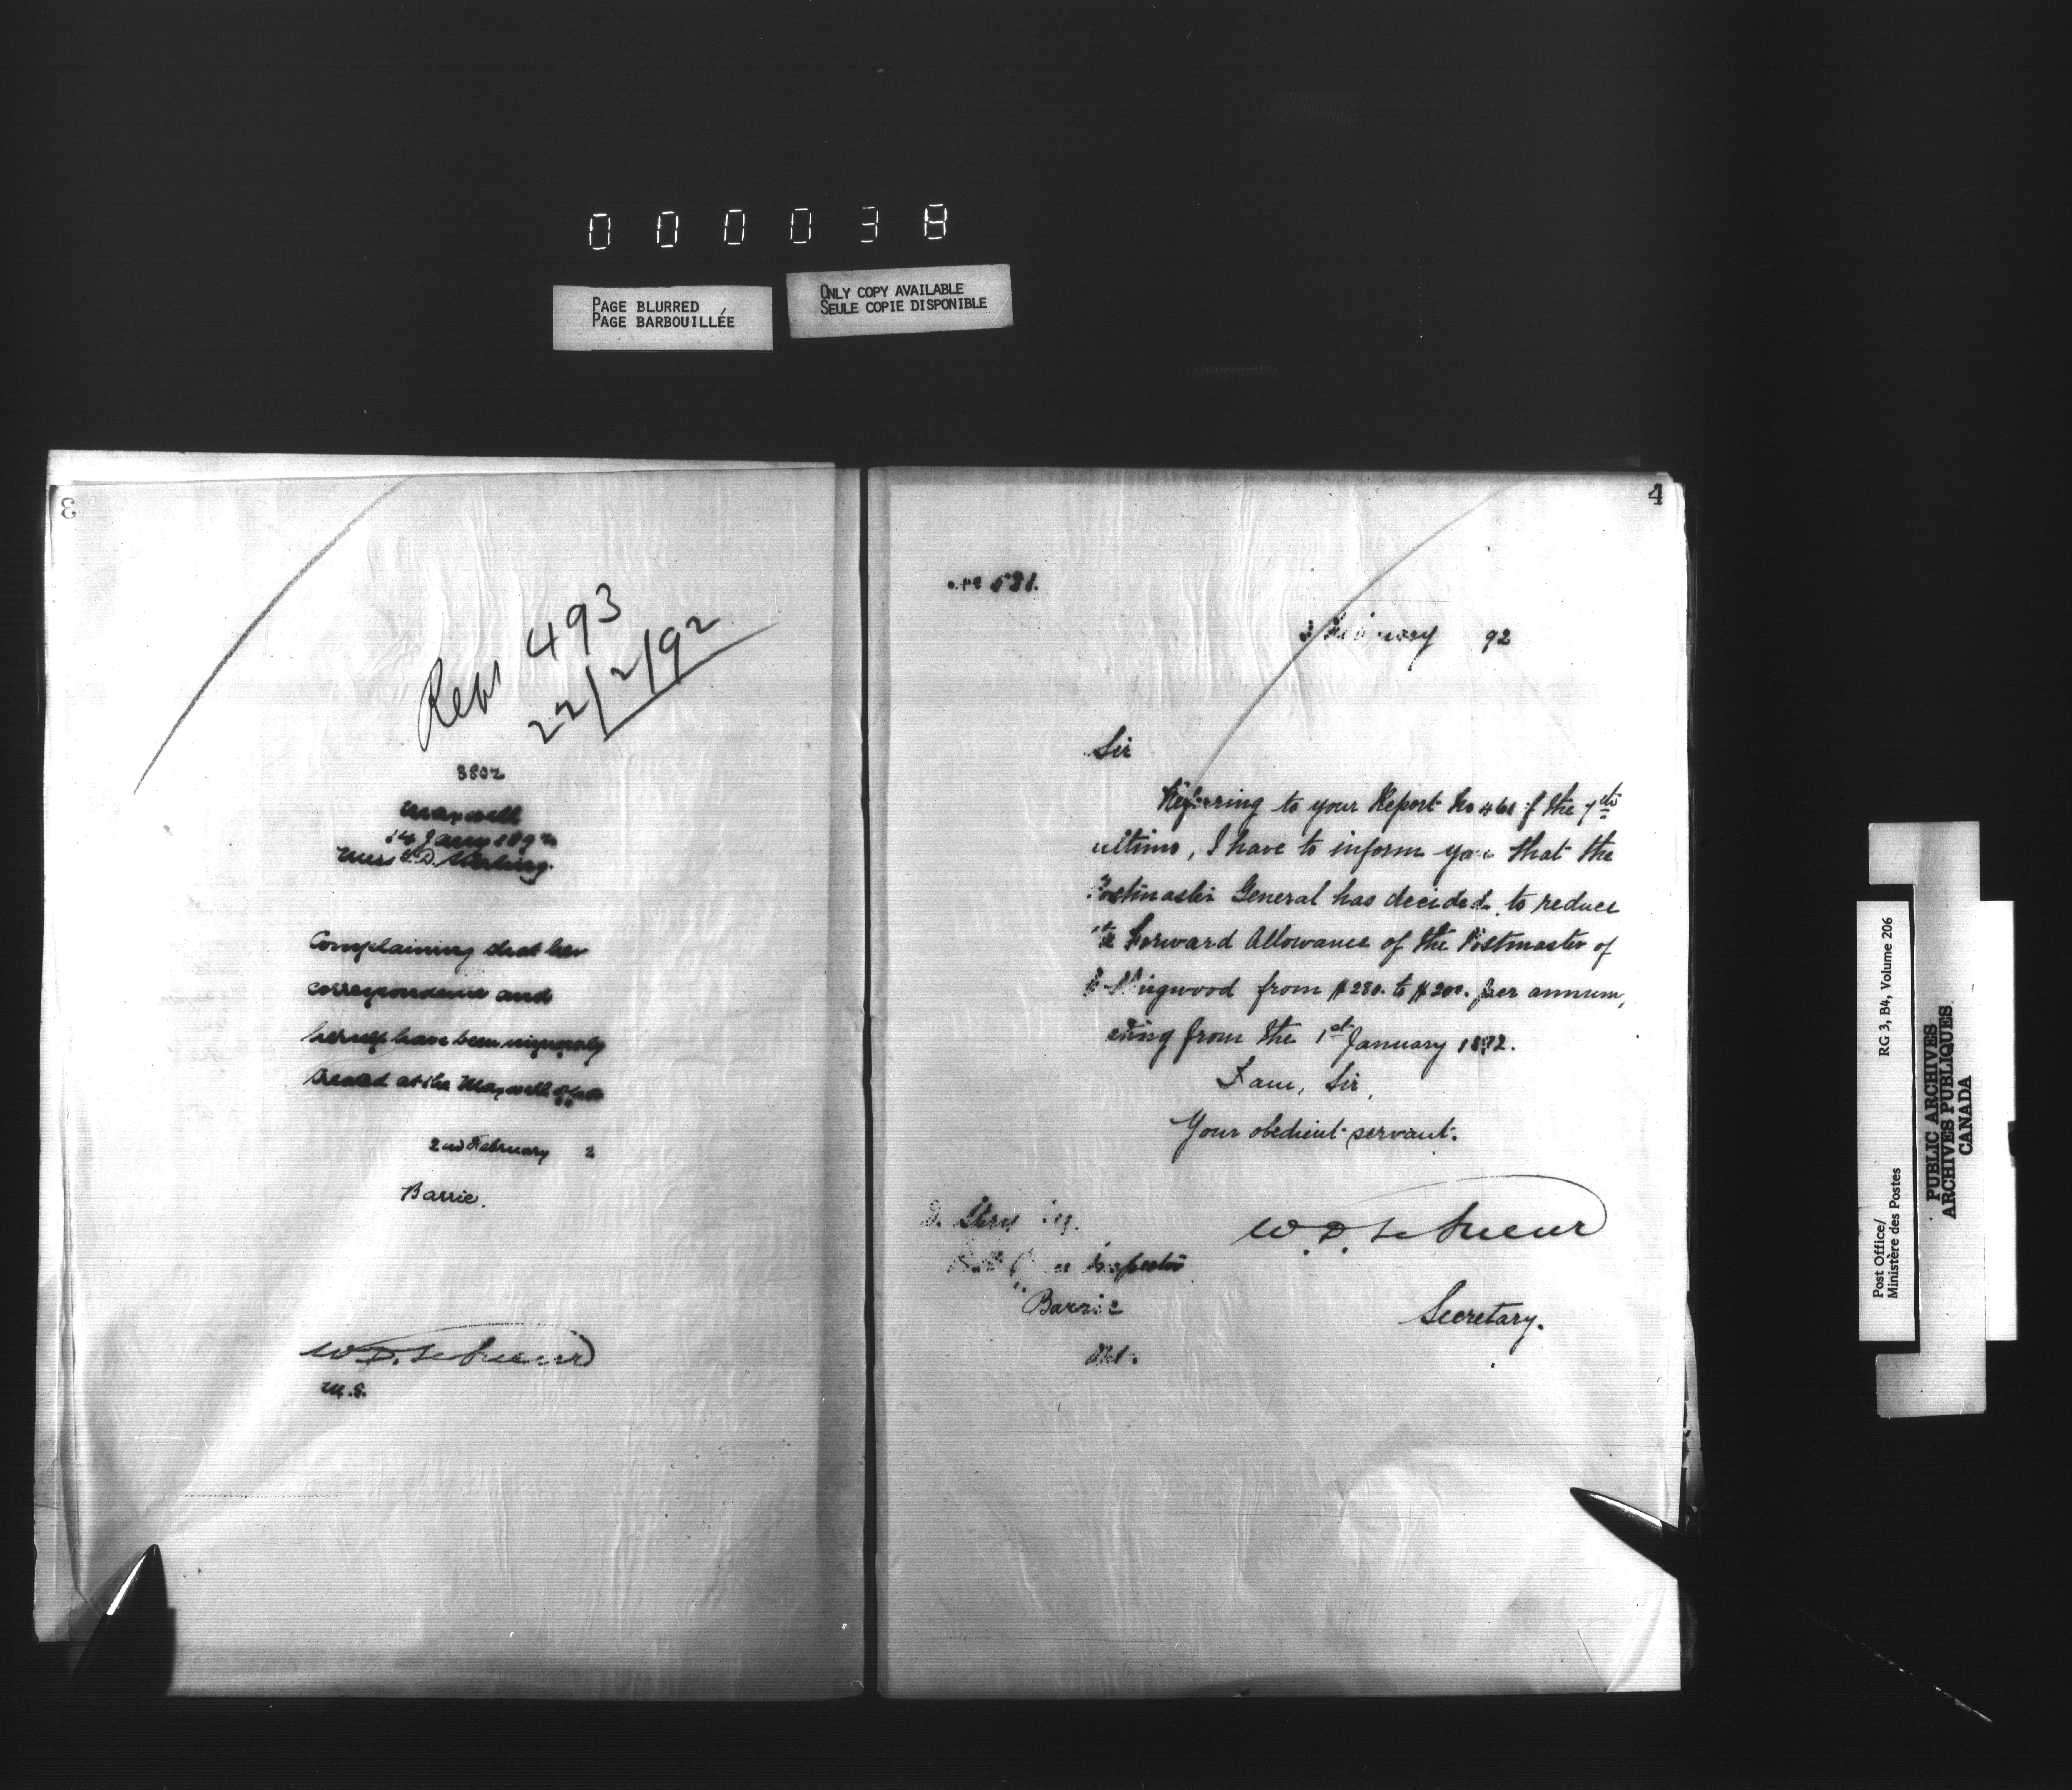 000038
PAGE BLURRED
PAGE BARBOUILLÉE
ONLY COPY AVAILABLE
SEULE COPIE DISPONIBLE
3
493
22/2/92
3802
Maxwell
14 Jany 189
Miss
Complaining that her
correspondence and
herself have been improperly
treated at the Maxwell office
2nd February 2
Barrie.
W.D. LeSueur
4
531.
February 92
Sir
Referring to your Report No 461 of the 7th
ultimo, I have to inform you that the
Postmaster General has decided to reduce
the Forward Allowance of the Postmaster of
Collingwood from $280. to $200. per annum,
from the 1st January 1892.
I am, Sir,
Your obedient servant.
W.D. LeSueur
Secretary.
Inspector
Barrie
Ont.
Post Office/
Ministère des Postes
RG 3, B4, Volume 206
PUBLIC ARCHIVES
ARCHIVES PUBLIQUES
CANADA